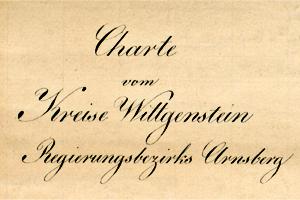 Charte
vom
Kreise Wittgenstein
Regierungsbezirks Arnsberg